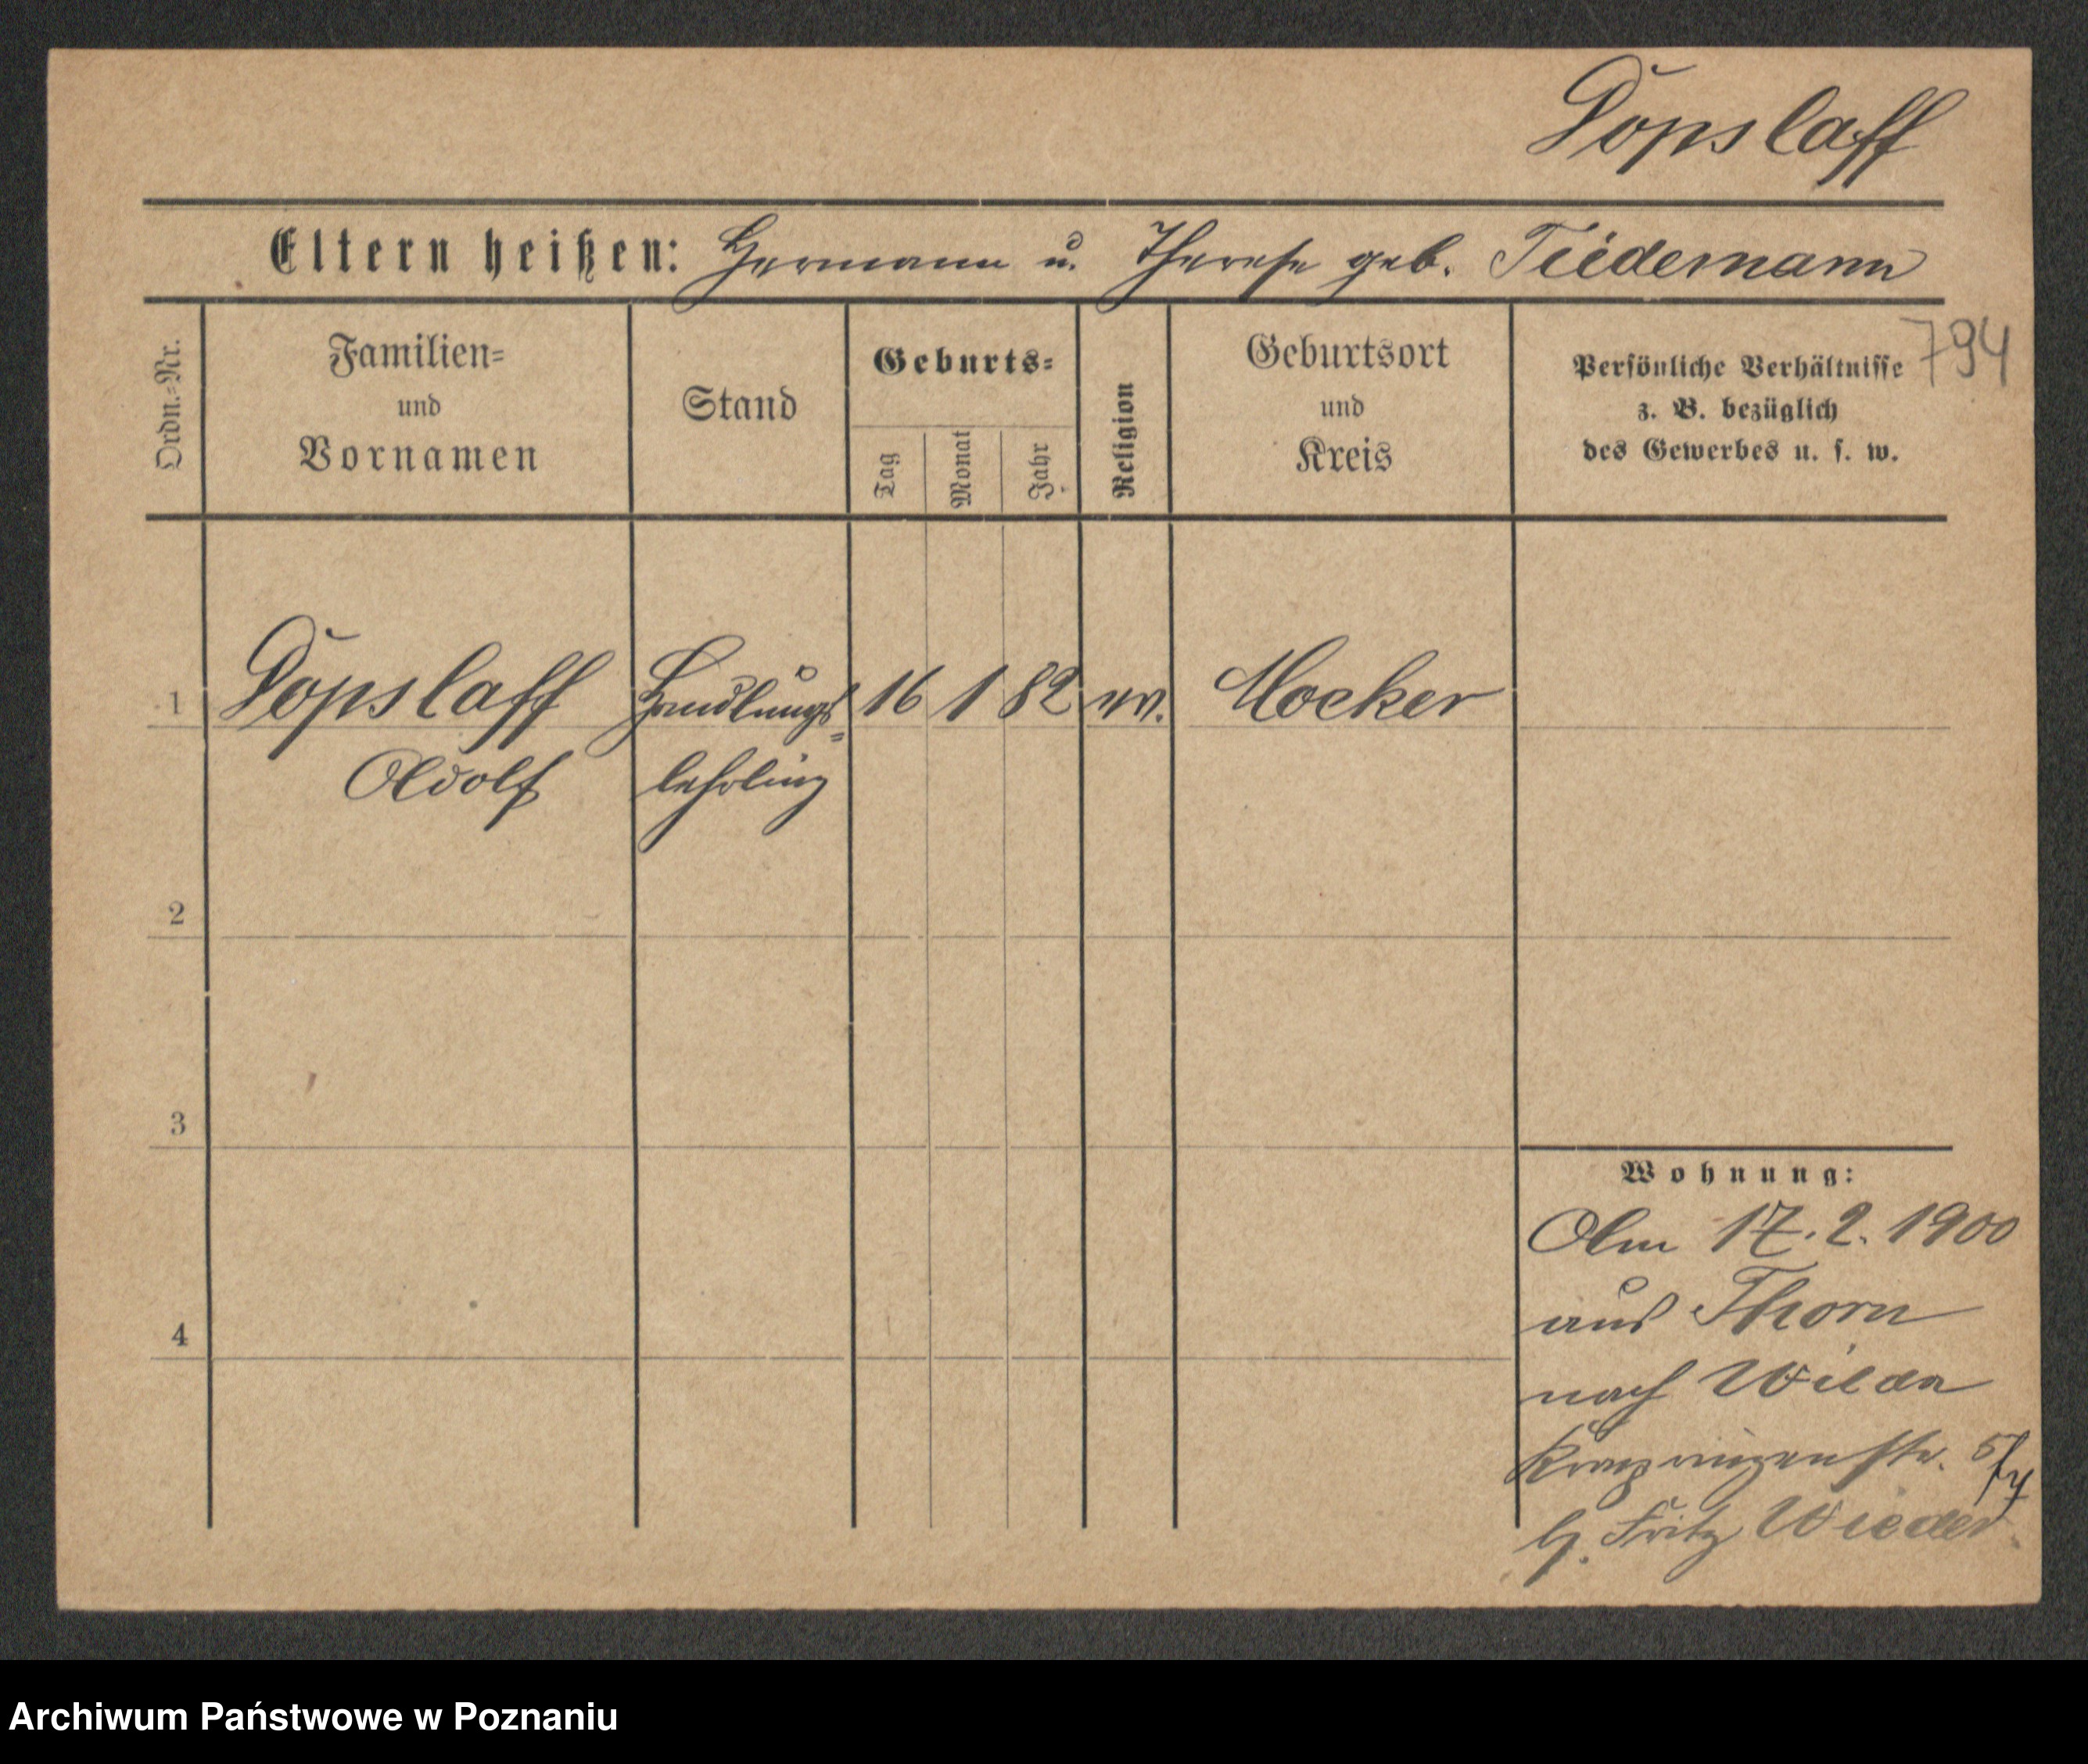 Dopslaff
Eltern heißen: Hermann u. Therese geb. Tiedemann
794
Ordn.-Nr.
Familien-
und
Vornamen
Stand
Geburts-
Tag
Monat
Jahr
Religion
Geburtsort
und
Kreis
Persönliche Verhältnisse
z. B. bezüglich
des Gewerbes u. s. w.
1 Dopslaff Handlungs= 16 1 82 ev. Mocker
Adolf lehrling
2
3
4
Wohnung:
Am 17.2.1900
aus Thorn
nach Wilda
Kronprinzenstr.
b. Fritz Wieder
Archiwum Państwowe w Poznaniu